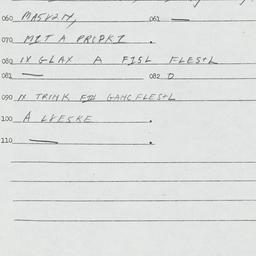 060 MASV2M, 061 —
070 MIT A PROPKI .
080 IN GLAX A FISL FLESTL
081 — 082 0
090 N TRINK FIN GANC FLESTL
100 A LVESKE .
110 — .